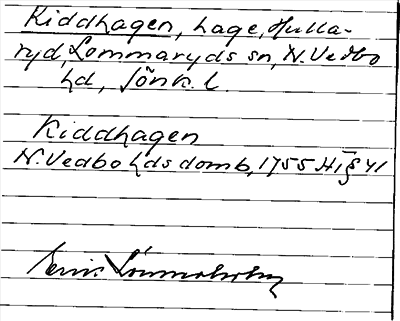 Kiddhagen, hage, Hulla-
ryd, Lommaryds sn, N. Vedbo
hd, Jönk. l.
Kiddhagen
N. Vedbo hds domb, 1755 HT § 41